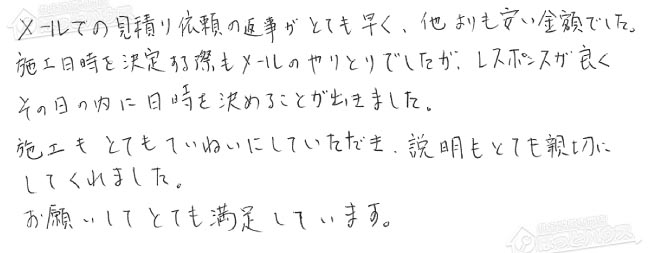 メールでの見積り依頼の返事がとても早く、他よりも安い金額でした。
施工日時を決定する際もメールのやりとりでしたが、レスポンスが良く
その日の内に日時を決めることが出きました。
施工もとてもていねいにしていただき、説明もとても親切に
してくれました。
お願いしてとても満足しています。